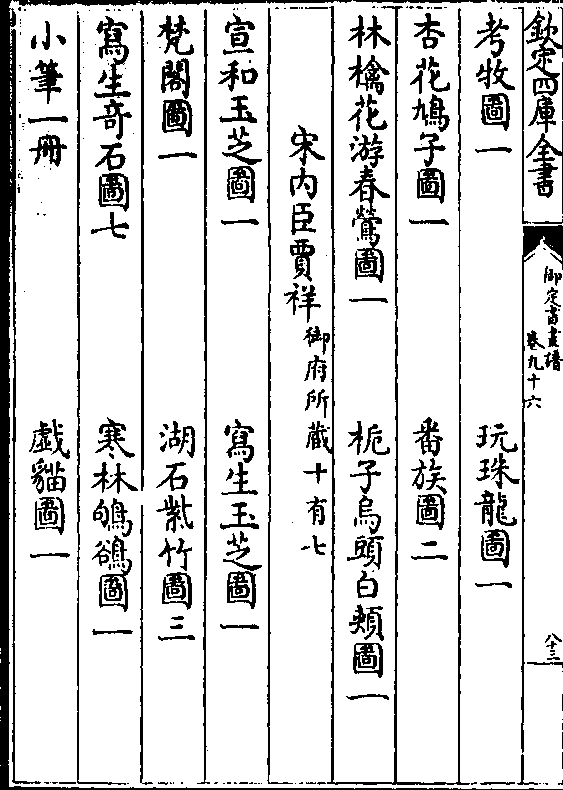 欽定四庫全書
御定書畫譜
卷九十六
八十三
考牧圖一 玩珠龍圖一
杏花鳩子圖一 番族圖二
林檎花游春鶯圖一 梔子烏頭白頰圖一
宋内臣賈祥御府所藏十有七
宣和玉芝圖一 寫生玉芝圖一
梵閣圖一 湖石紫竹圖三
寫生奇石圖七 寒林鴝鵒圖一
小筆一冊 戯貓圖一